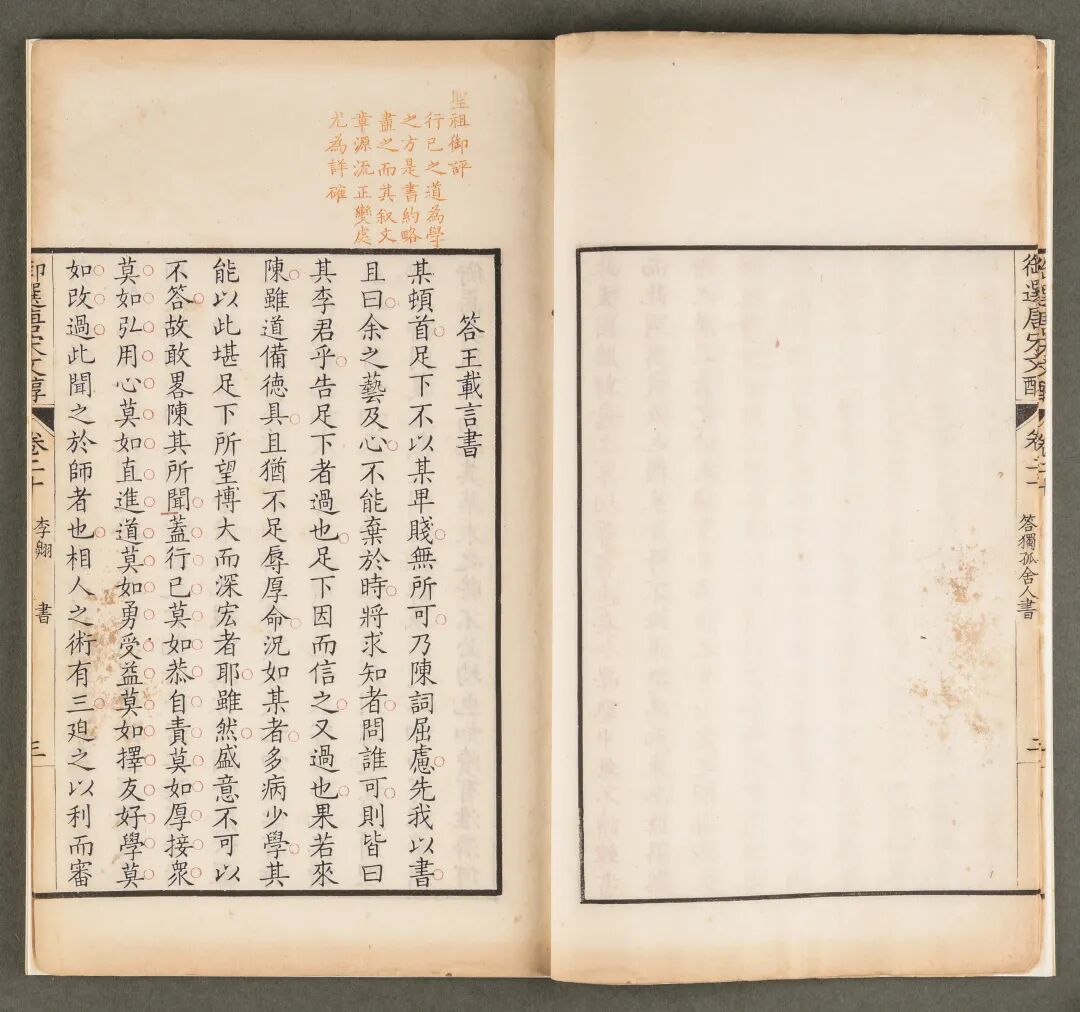 御選唐宋文醇
卷二十
答獨孤舍人書
二
聖祖御評
行已之道為學
之方是書約略
盡之而其叙文
章源流正變處
尤為詳確
答王載言書
某頓首足下不以某卑賤無所可乃陳詞屈慮先我以書
且曰余之藝及心不能棄於時將求知者問誰可則皆曰
其李君乎告足下者過也足下因而信之又過也果若來
陳雖道備德具且猶不足辱厚命況如某者多病少學其
能以此堪足下所望博大而深宏者耶雖然盛意不可以
不答故敢畧陳其所聞蓋行已莫如恭自責莫如厚接衆
莫如弘用心莫如直進道莫如勇受益莫如擇友好學莫
如改過此聞之於師者也相人之術有三迫之以利而審
御選唐宋文醇
卷二十
李翺
書
三